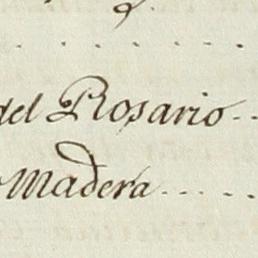 del Rosario..
Madera.....